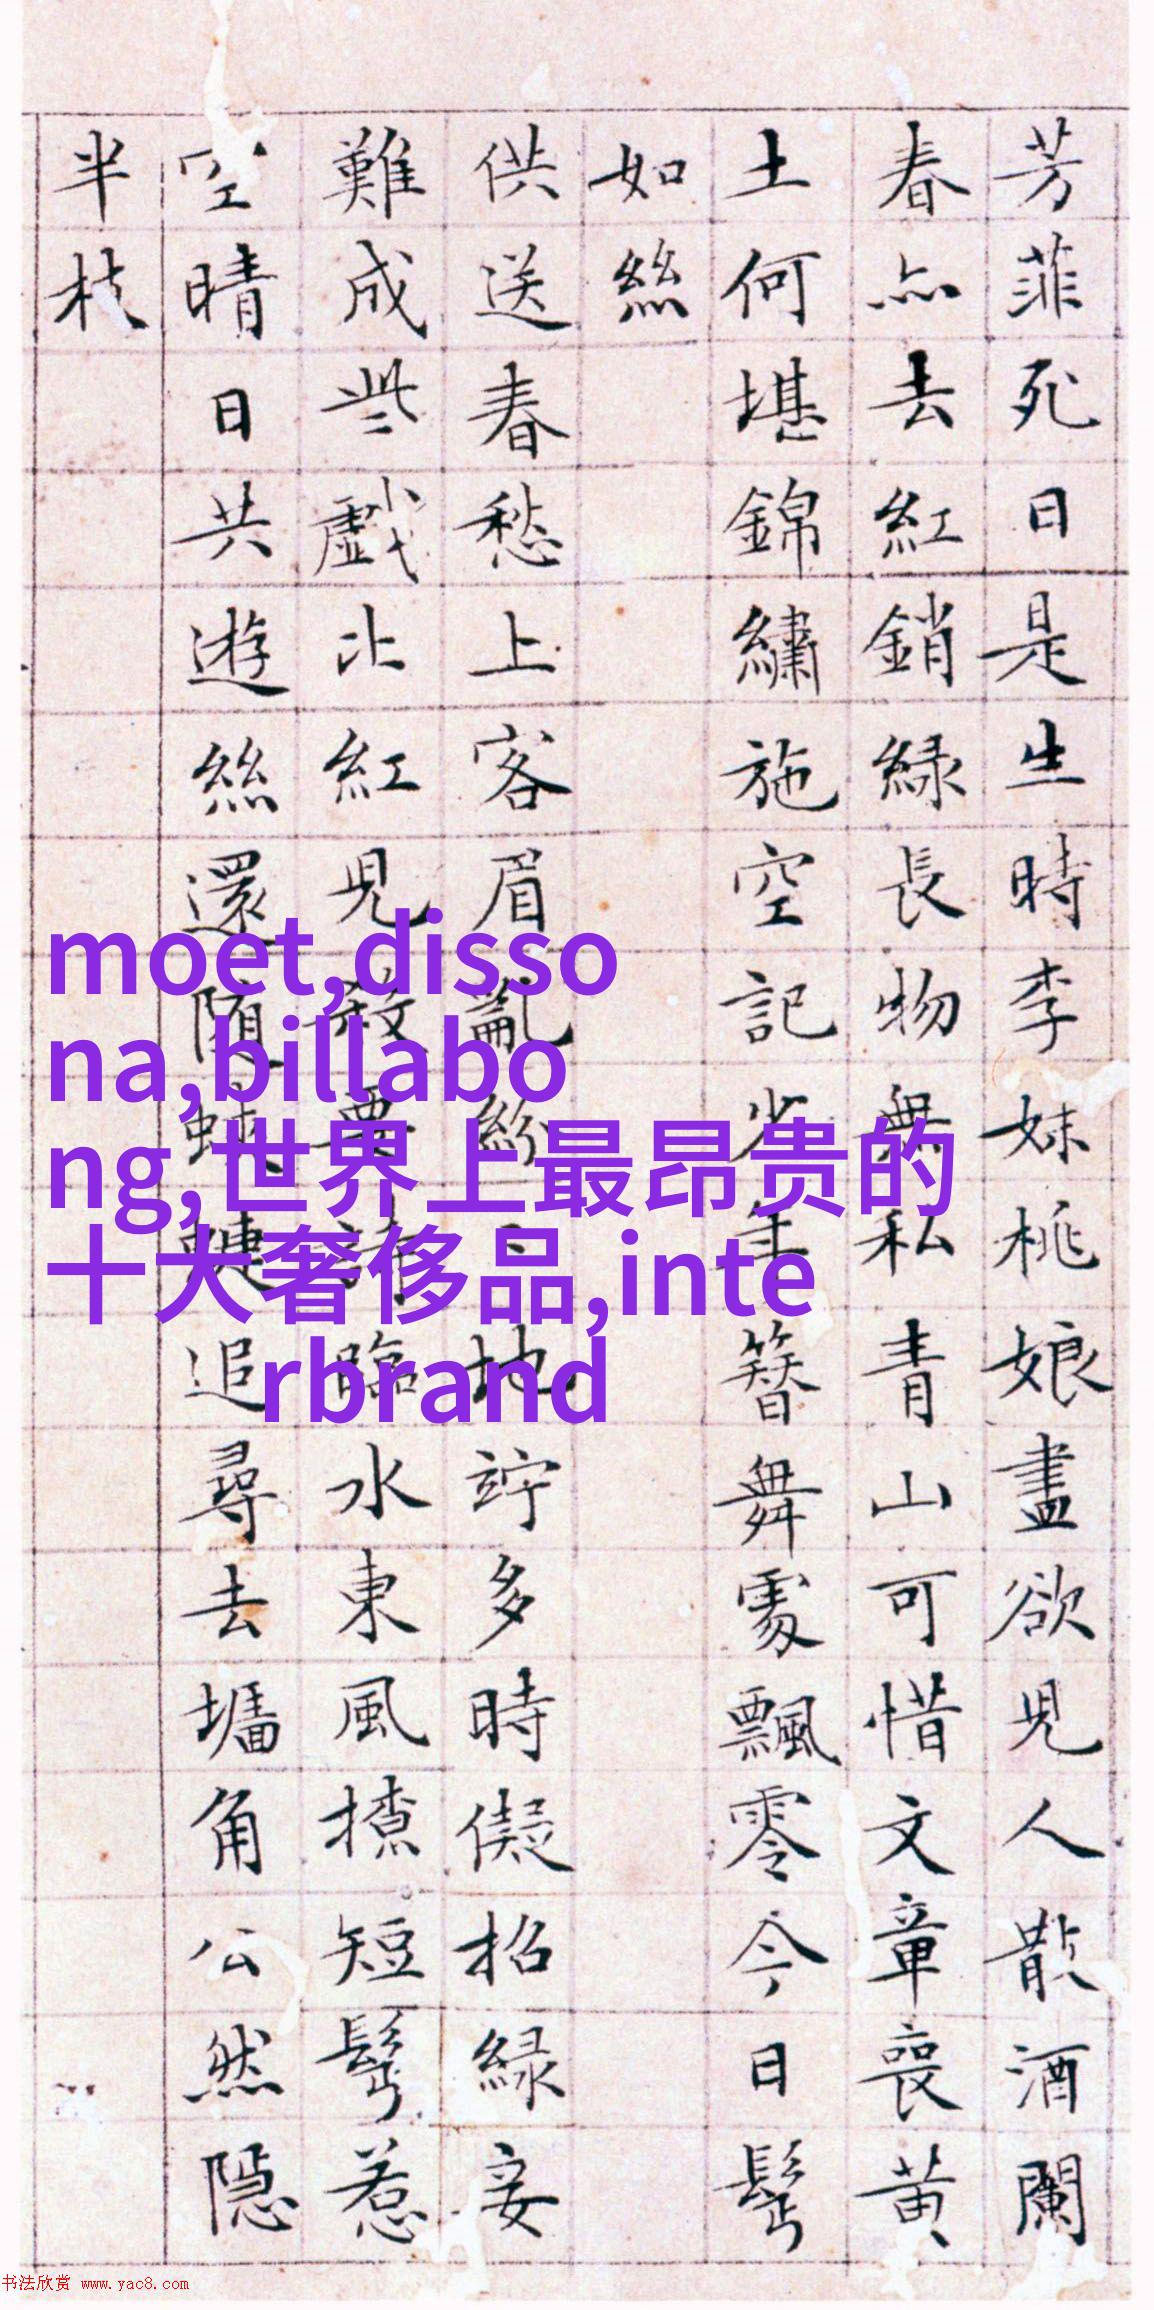 芳菲死日是生時李妹桃娘盡欲兒人散酒闌
春亦去紅銷緑長物無私青山可惜文章喪黄
土何堪錦繡施空記少年簪舞處飄零今日鬢
如絲
供送春愁上客眉亂紛〻地竚多時儗招緑妾
難成些戲比紅兒敢要詩臨水東風撩短鬢惹
空晴日共遊絲還隨蛺蝶追尋去墻角公然隱
半枝
moet,disso
na,billabo
ng,世界上最昂贵的
十大奢侈品,inte
rbrand
书法欣赏 www.yac8.com